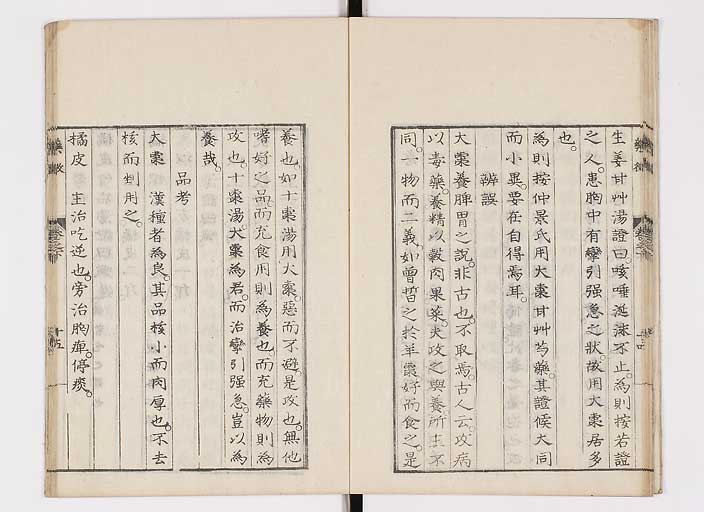 生姜甘艸湯證曰。咳唾涎沫不止。為則按。若證
之人。患胸中有攣引强急之狀。故用大棗居多
也。
為則按。仲景氏用大棗甘艸芍藥。其證候大同
而小異。要在自得焉耳。
辨誤
大棗養脾胃之說。非古也。不取焉。古人云。攻病
以毒藥。養精以穀肉果菜。夫攻之與養。所主不
同。一物而二義。如曾晳之於羊棗。好而食之。是
養也。如十棗湯用大棗。惡而不避。是攻也。無他。
嗜好之品。而充食用。則為養也。而充藥物。則為
攻也。十棗湯。大棗為君。而治攣引强急。豈以為
養哉。
品考
大棗 漢種者為良。其品核小而肉厚也。不去
核而剉用之。
橘皮 主治吃逆也。旁治胸痺。停痰。
藥徵